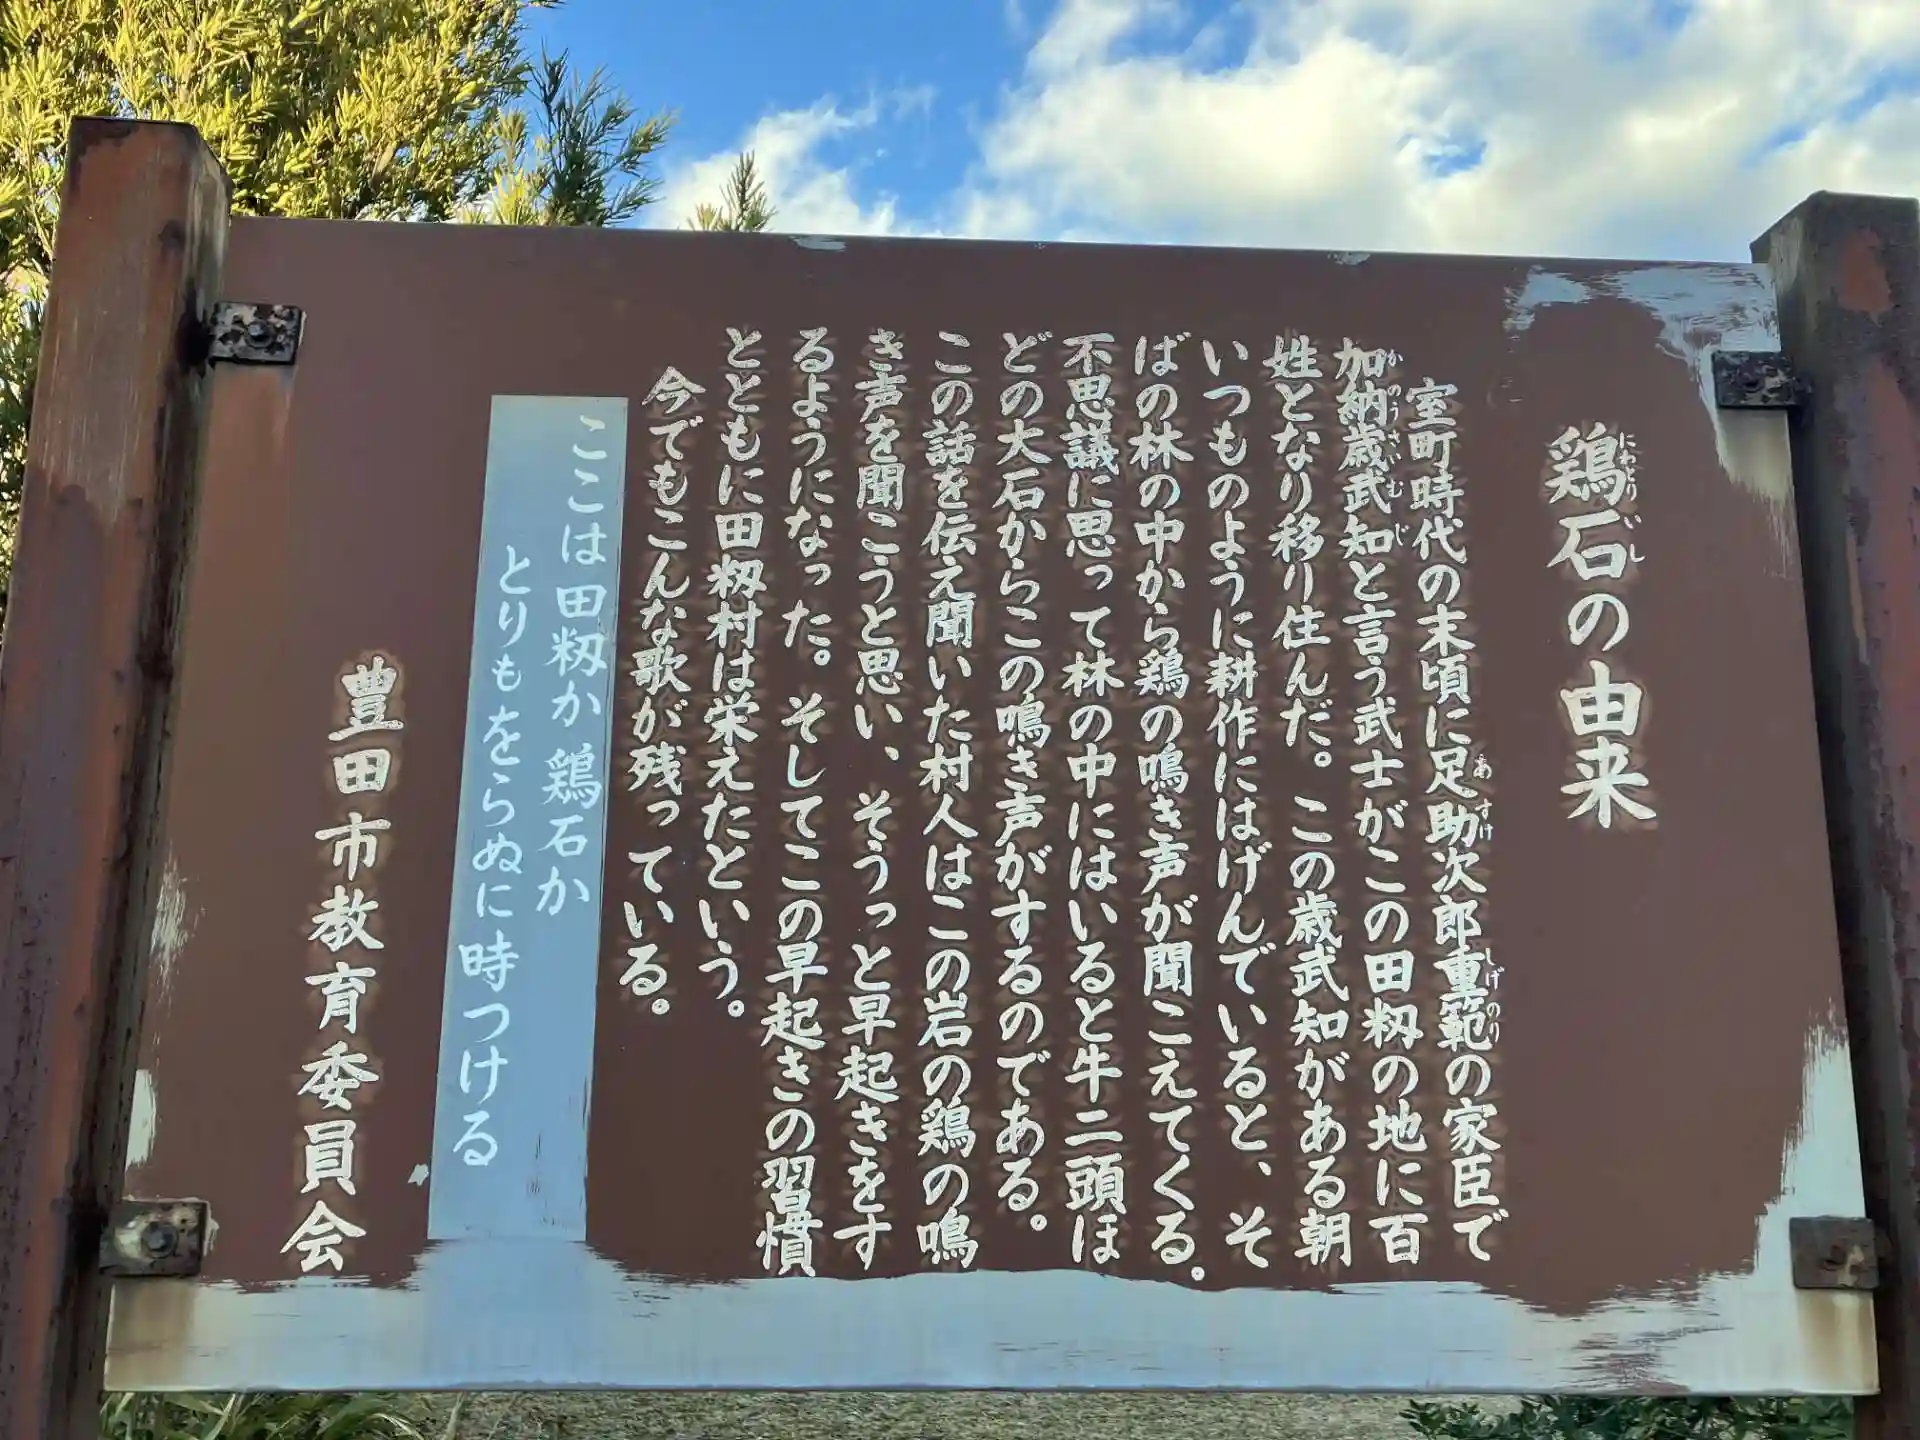 鶏石の由来
室町時代の末頃に足助次郎重範の家臣で
加納歳武知と言う武士がこの田籾の地に百
姓となり移り住んだ。この歳武知がある朝
いつものように耕作にはげんでいると、そ
ばの林の中から鶏の鳴き声が聞こえてくる。
不思議に思って林の中にはいると牛二頭ほ
どの大石からこの鳴き声がするのである。
この話を伝え聞いた村人はこの岩の鶏の鳴
き声を聞こうと思い、そうっと早起きをす
るようになった。そしてこの早起きの習慣
とともに田籾村は栄えたという。
今でもこんな歌が残っている。
ここは田籾か 鶏石か
とりもをらぬに時つける
豊田市教育委員会